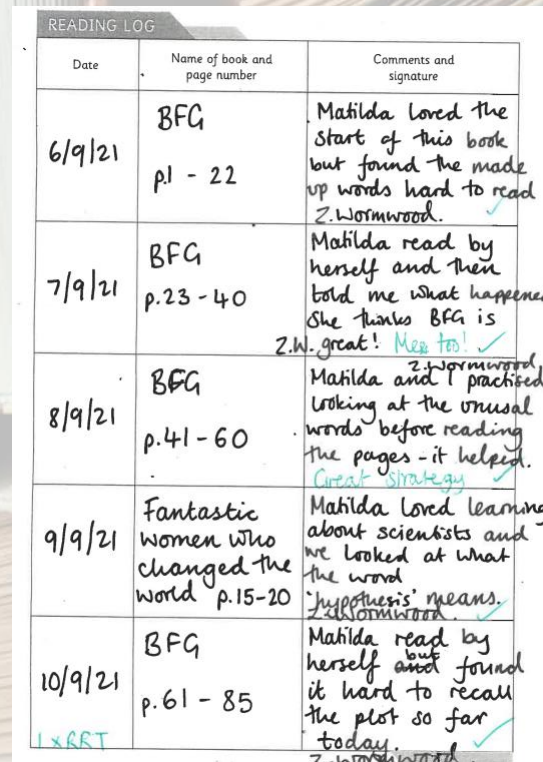 READING LOG
Date
Name of book and
page number
Comments and
signature
6/9/21
BFG
p.1 - 22
Matilda loved the
start of this book
but found the made
up words hard to read
Z.Wormwood.
7/9/21
BFG
p.23-40
Matilda read by
herself and then
told me what happene
She thinks BFG is
Z.W. great! Mee too!
8/9/21
BFG
p.41-60
Z.Wormwood
Matilda and I practised
looking at the unusual
words before reading
the pages - it helped.
Great strategy
9/9/21
Fantastic
women who
changed the
world p.15-20
Matilda loved learning
about scientists and
we looked at what
the word
'hypothesis' means.
Z.Wormwood.
10/9/21
1xRRT
BFG
p.61 - 85
Matilda read by
but
herself and found
it hard to recall
the plot so far
today.
Z.Wormwood